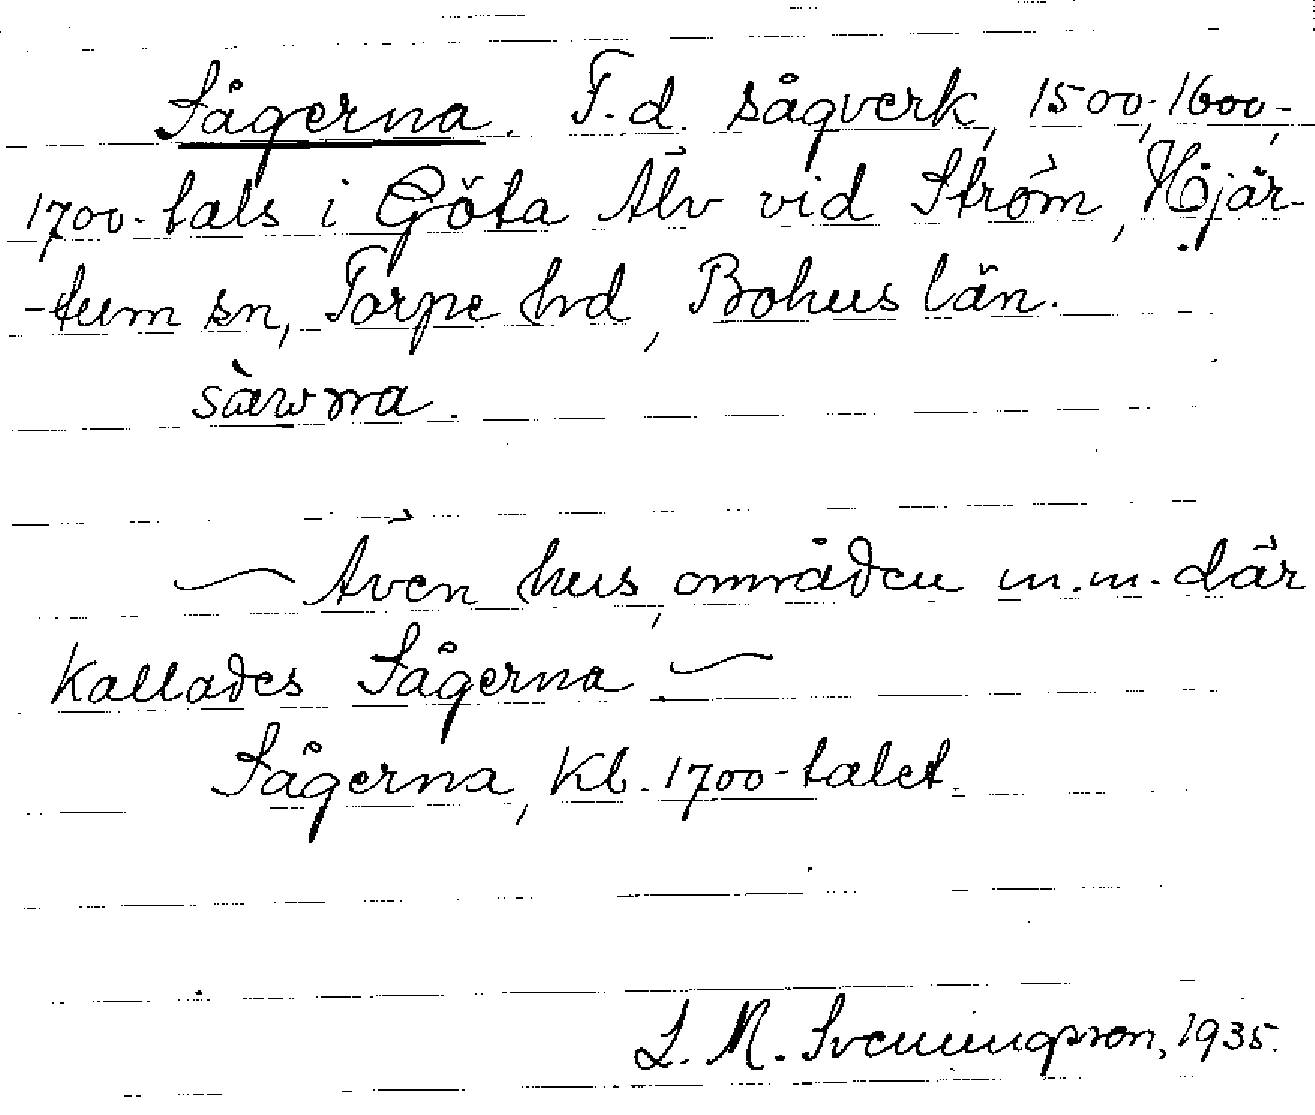 Sågerna. F.d. sågverk, 1500-, 1600-,
1700-tals i Göta Älv vid Ström, Hjär-
-tum sn, Torpe hd, Bohus län.
sàwrna.
~ Även hus, områden m.m. där
kallades Sågerna ~
Sågerna, kb. 1700-talet.
L. M. Svenungsson, 1935.